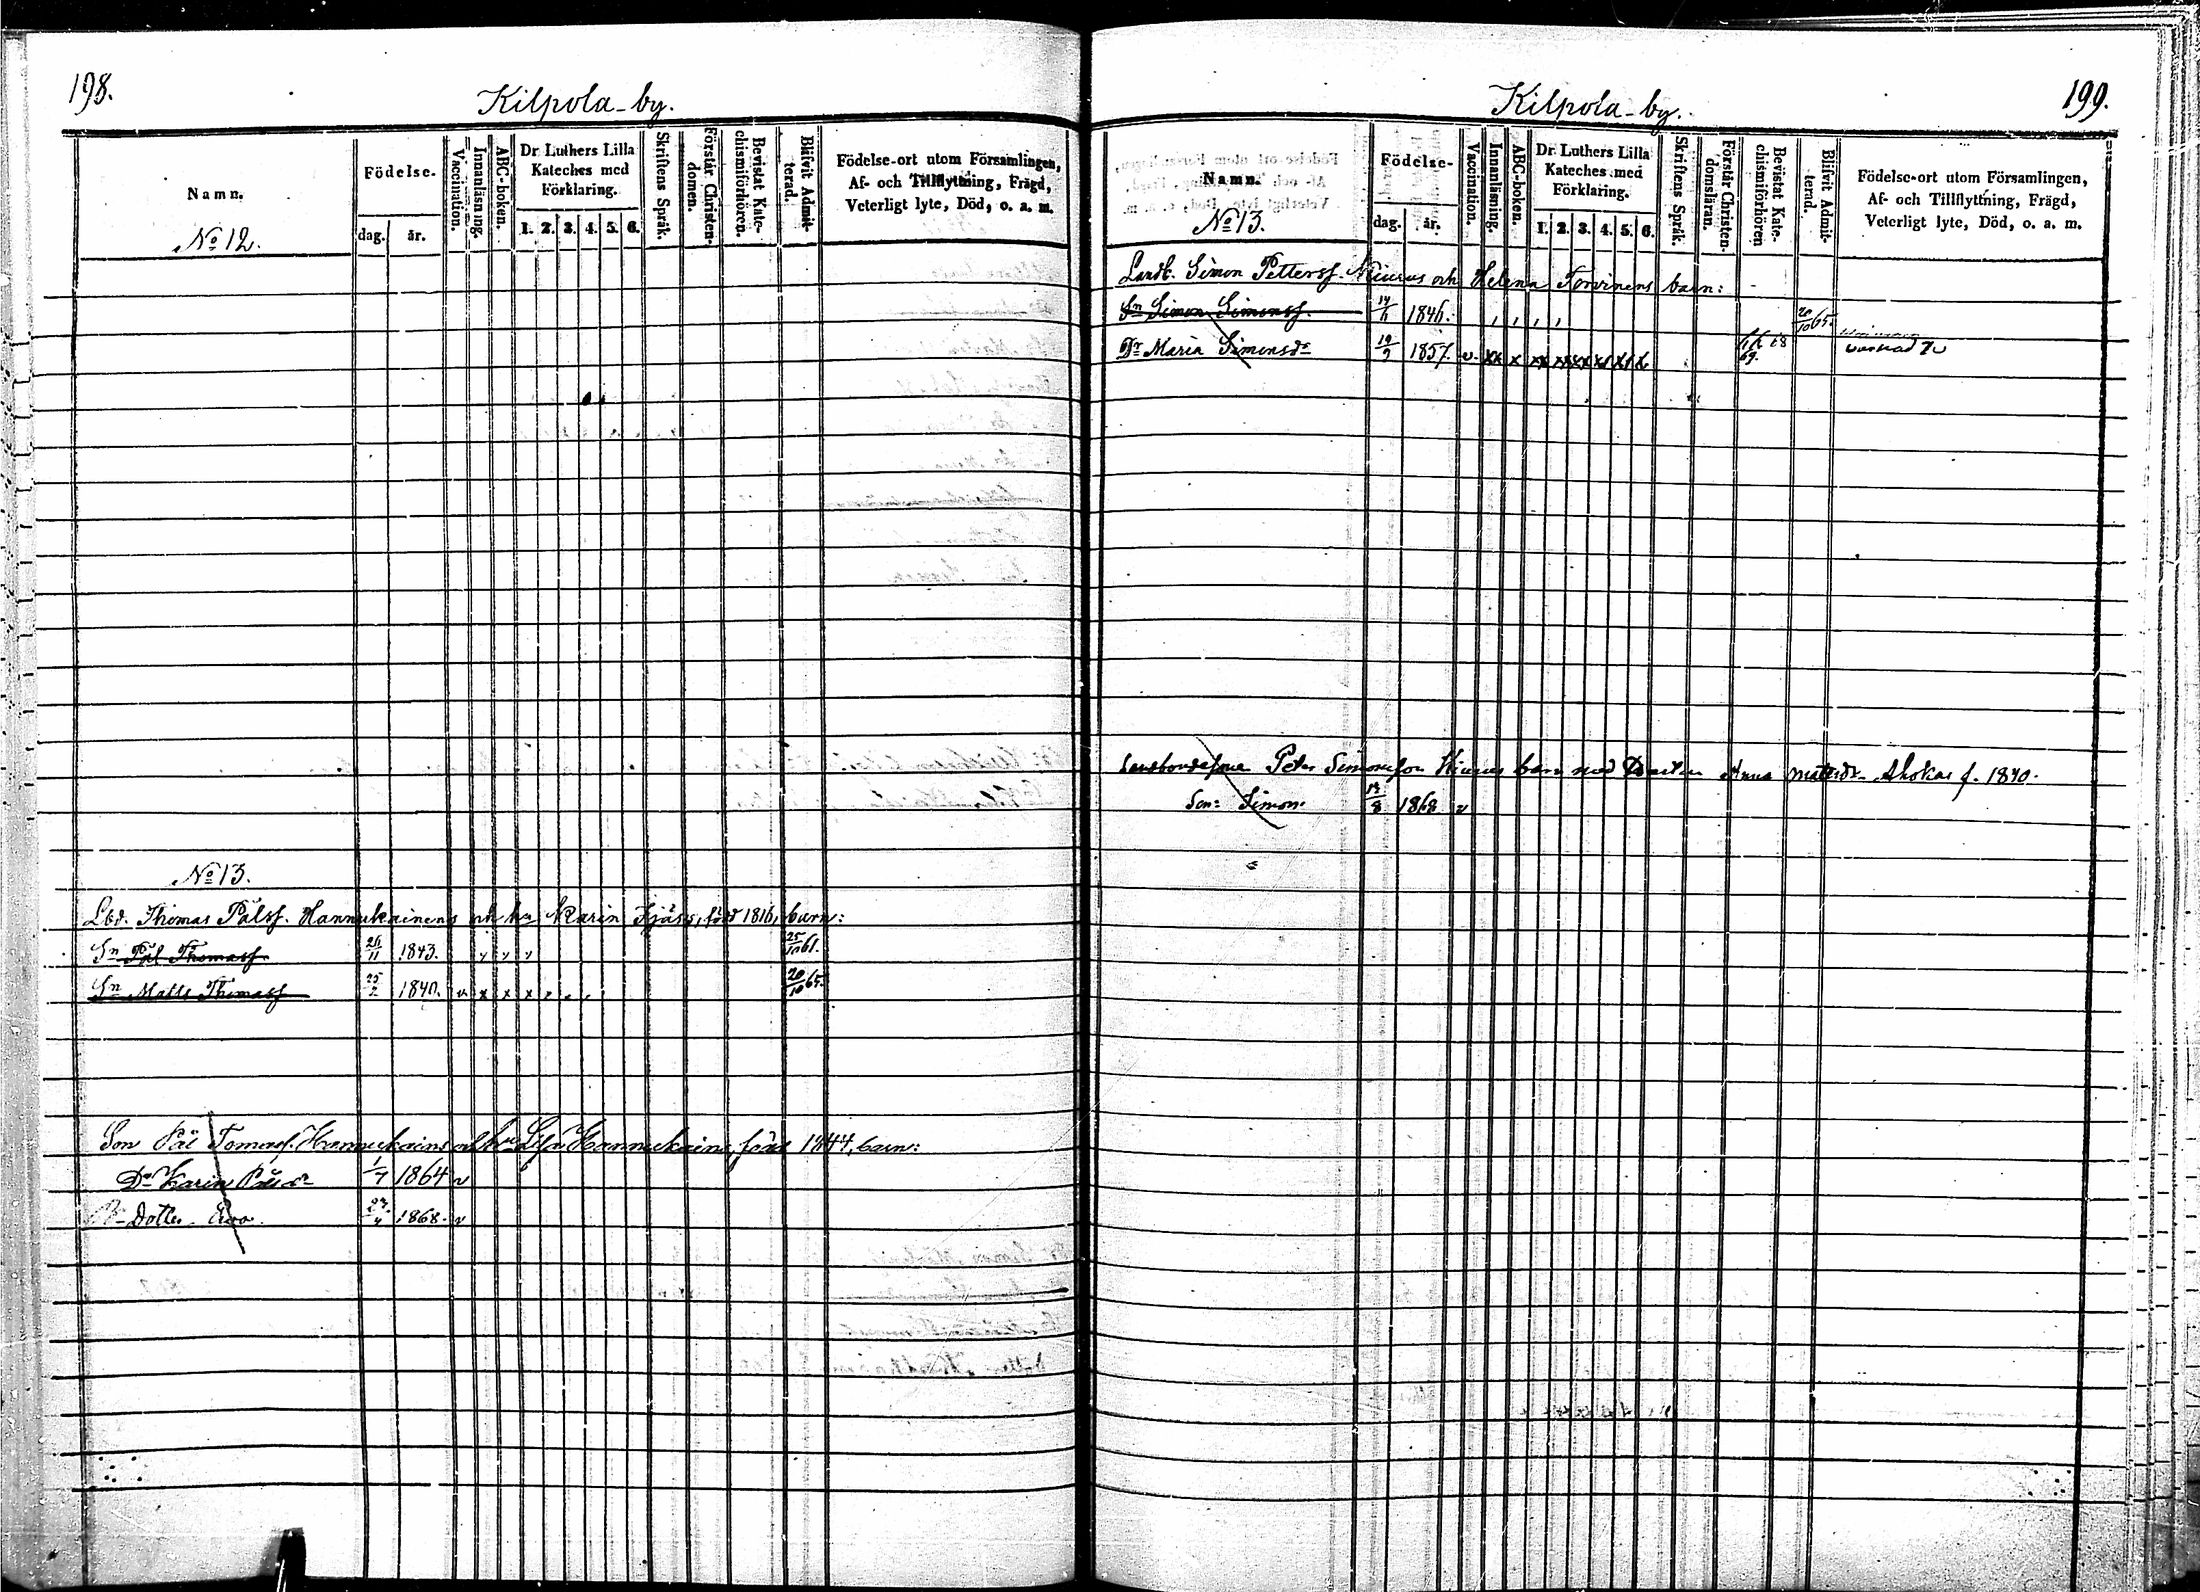 198.
Kilpola-by.
Namn.
Födelse.
dag.
år.
Vaccination.
Innanläsning.
ABC-boken.
Dr Luthers Lilla
Kateches med
Förklaring.
1. 2. 3. 4. 5. 6.
Skriftens Språk.
Förstår Christen-
domen.
Bevistat Kate-
chismiförhören.
Blifvit Admit-
terad.
Födelse-ort utom Församlingen,
Af- och Tillflyttning, Frägd,
Veterligt lyte, Död, o. a. m.
No 12.
No 13.
Lbd. Thomas Pålss. Hannukainens och hu Karin född 1816, barn:
Sn Pål Thomass 26/11 1843. 25/10 61.
Sn Matts Thomass 25/2 1840. v x x x 20/10 65.
Son Pål Tomass. Hannukains och hu Hannukain, född 1844, barn:
Dr Karin Pålsdr 1/7 1864 v
Dotter 1868. v
199.
Kilpola-by.
Namn.
No 13.
Födelse-
dag.
år.
Vaccination.
Innanläsning.
ABC-boken.
Dr Luthers Lilla
Kateches med
Förklaring.
1. 2. 3. 4. 5. 6.
Skriftens Språk.
Förstår Christen-
domsläran.
Bevistat Kate-
chismiförhören
Blifvit Admit-
terad.
Födelse-ort utom Församlingen,
Af- och Tillflyttning, Frägd,
Veterligt lyte, Död, o. a. m.
Landb. Simon Petterss. Kiurus och Helena Torvinens barn:
Sn Simon Simonss. 1846. 20/10 65.
Dr Maria Simonsdr 19/9 1857. v. xx x 68
69.
Landbondesone Peter Simonsson Kiurus barn med Anna Mattsdr Ahokas f. 1840.
Son: Simon 1868 v